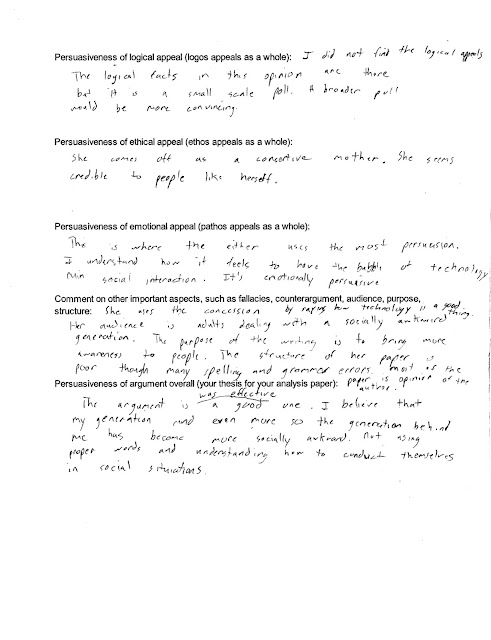 Persuasiveness of logical appeal (logos appeals as a whole): I did not find the logical appeals
The logical facts in this opinion are there
but it is a small scale poll. A broader pull
would be more convincing.
Persuasiveness of ethical appeal (ethos appeals as a whole):
She comes off as a mother. She seems
credible to people like herself.
Persuasiveness of emotional appeal (pathos appeals as a whole):
is where the either uses the most persuasion.
I understand how it feels to have the bubble of technology
ruin social interaction. It's emotionally persuasive
Comment on other important aspects, such as fallacies, counterargument, audience, purpose,
structure: She uses the concession by saying how technology is a good thing.
Her audience is adults dealing with a socially awkward
generation. The purpose of the writing is to bring more
awareness to people. The structure of her paper is
poor though many spelling and grammer errors. most of the
paper is opinion of the author.
Persuasiveness of argument overall (your thesis for your analysis paper):
The argument is a good one. was effective I believe that
my generation and even more so the generation behind
me has become more socially awkward. Not using
proper words and understanding how to conduct themselves
in social situations.